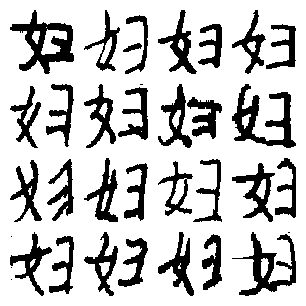 妇妇妇妇
妇妇妇妇
妇妇妇妇
妇妇妇妇